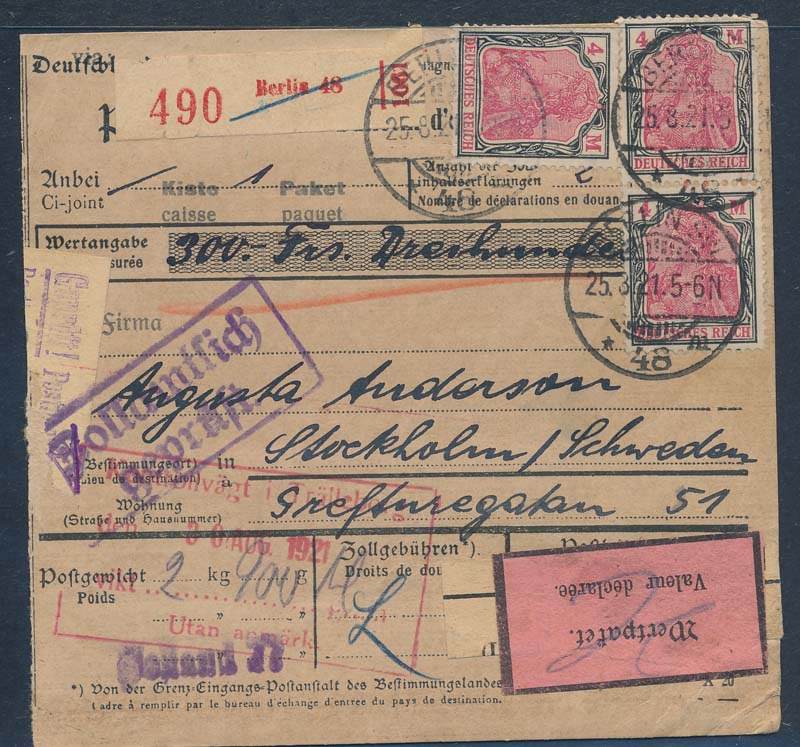 via:
Deutschl
490
Berlin 48
Anbei
Ci-joint
1
Kiste
caisse
Paket
paquet
Anzahl der Zoll
inhaltserklärungen
Nombre de déclarations en douan
4 M
DEUTSCHES REICH
4 M
DEUTSCHES REICH
4 M
DEUTSCHES REICH
25.8.21.5
25.8.21.5-6N
* 48
Wertangabe
surée
300.- Frs. Dreihunde
Firma
Zollamtlich
geprüft
Augusta Anderson
(Bestimmungsort) in
(Lieu de destination) à
Stockholm/Schweden
Wohnung
(Straße und Hausnummer)
Grefturegatan 51
den 30 AUG. 1921
vikt
Utan anmärk.
Postgewicht 2 kg 900 g
Poids
Zollgebühren*).
Droits de dou
Wertpaket.
Valeur déclarée.
*) Von der Grenz-Eingangs-Postanstalt des Bestimmungslandes
(à remplir par le bureau d'échange d'entrée du pays de destination.